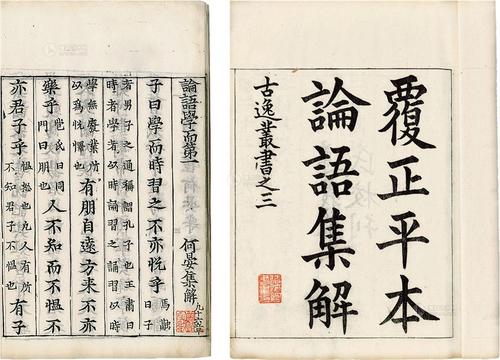 覆正平本
論語集解
古逸叢書之三
論語學而第一 何晏集解
子曰學而時習之不亦悅乎 馬融曰子
者男子之通稱謂孔子也王肅曰
時者學者以時誦習之誦習以時
學無廢業所以爲悅懌也 有朋自遠方來不亦
樂乎 苞氏曰同門曰朋也 人不知而不慍不
亦君子乎 慍怒也凡人有所不知君子不慍也 有子